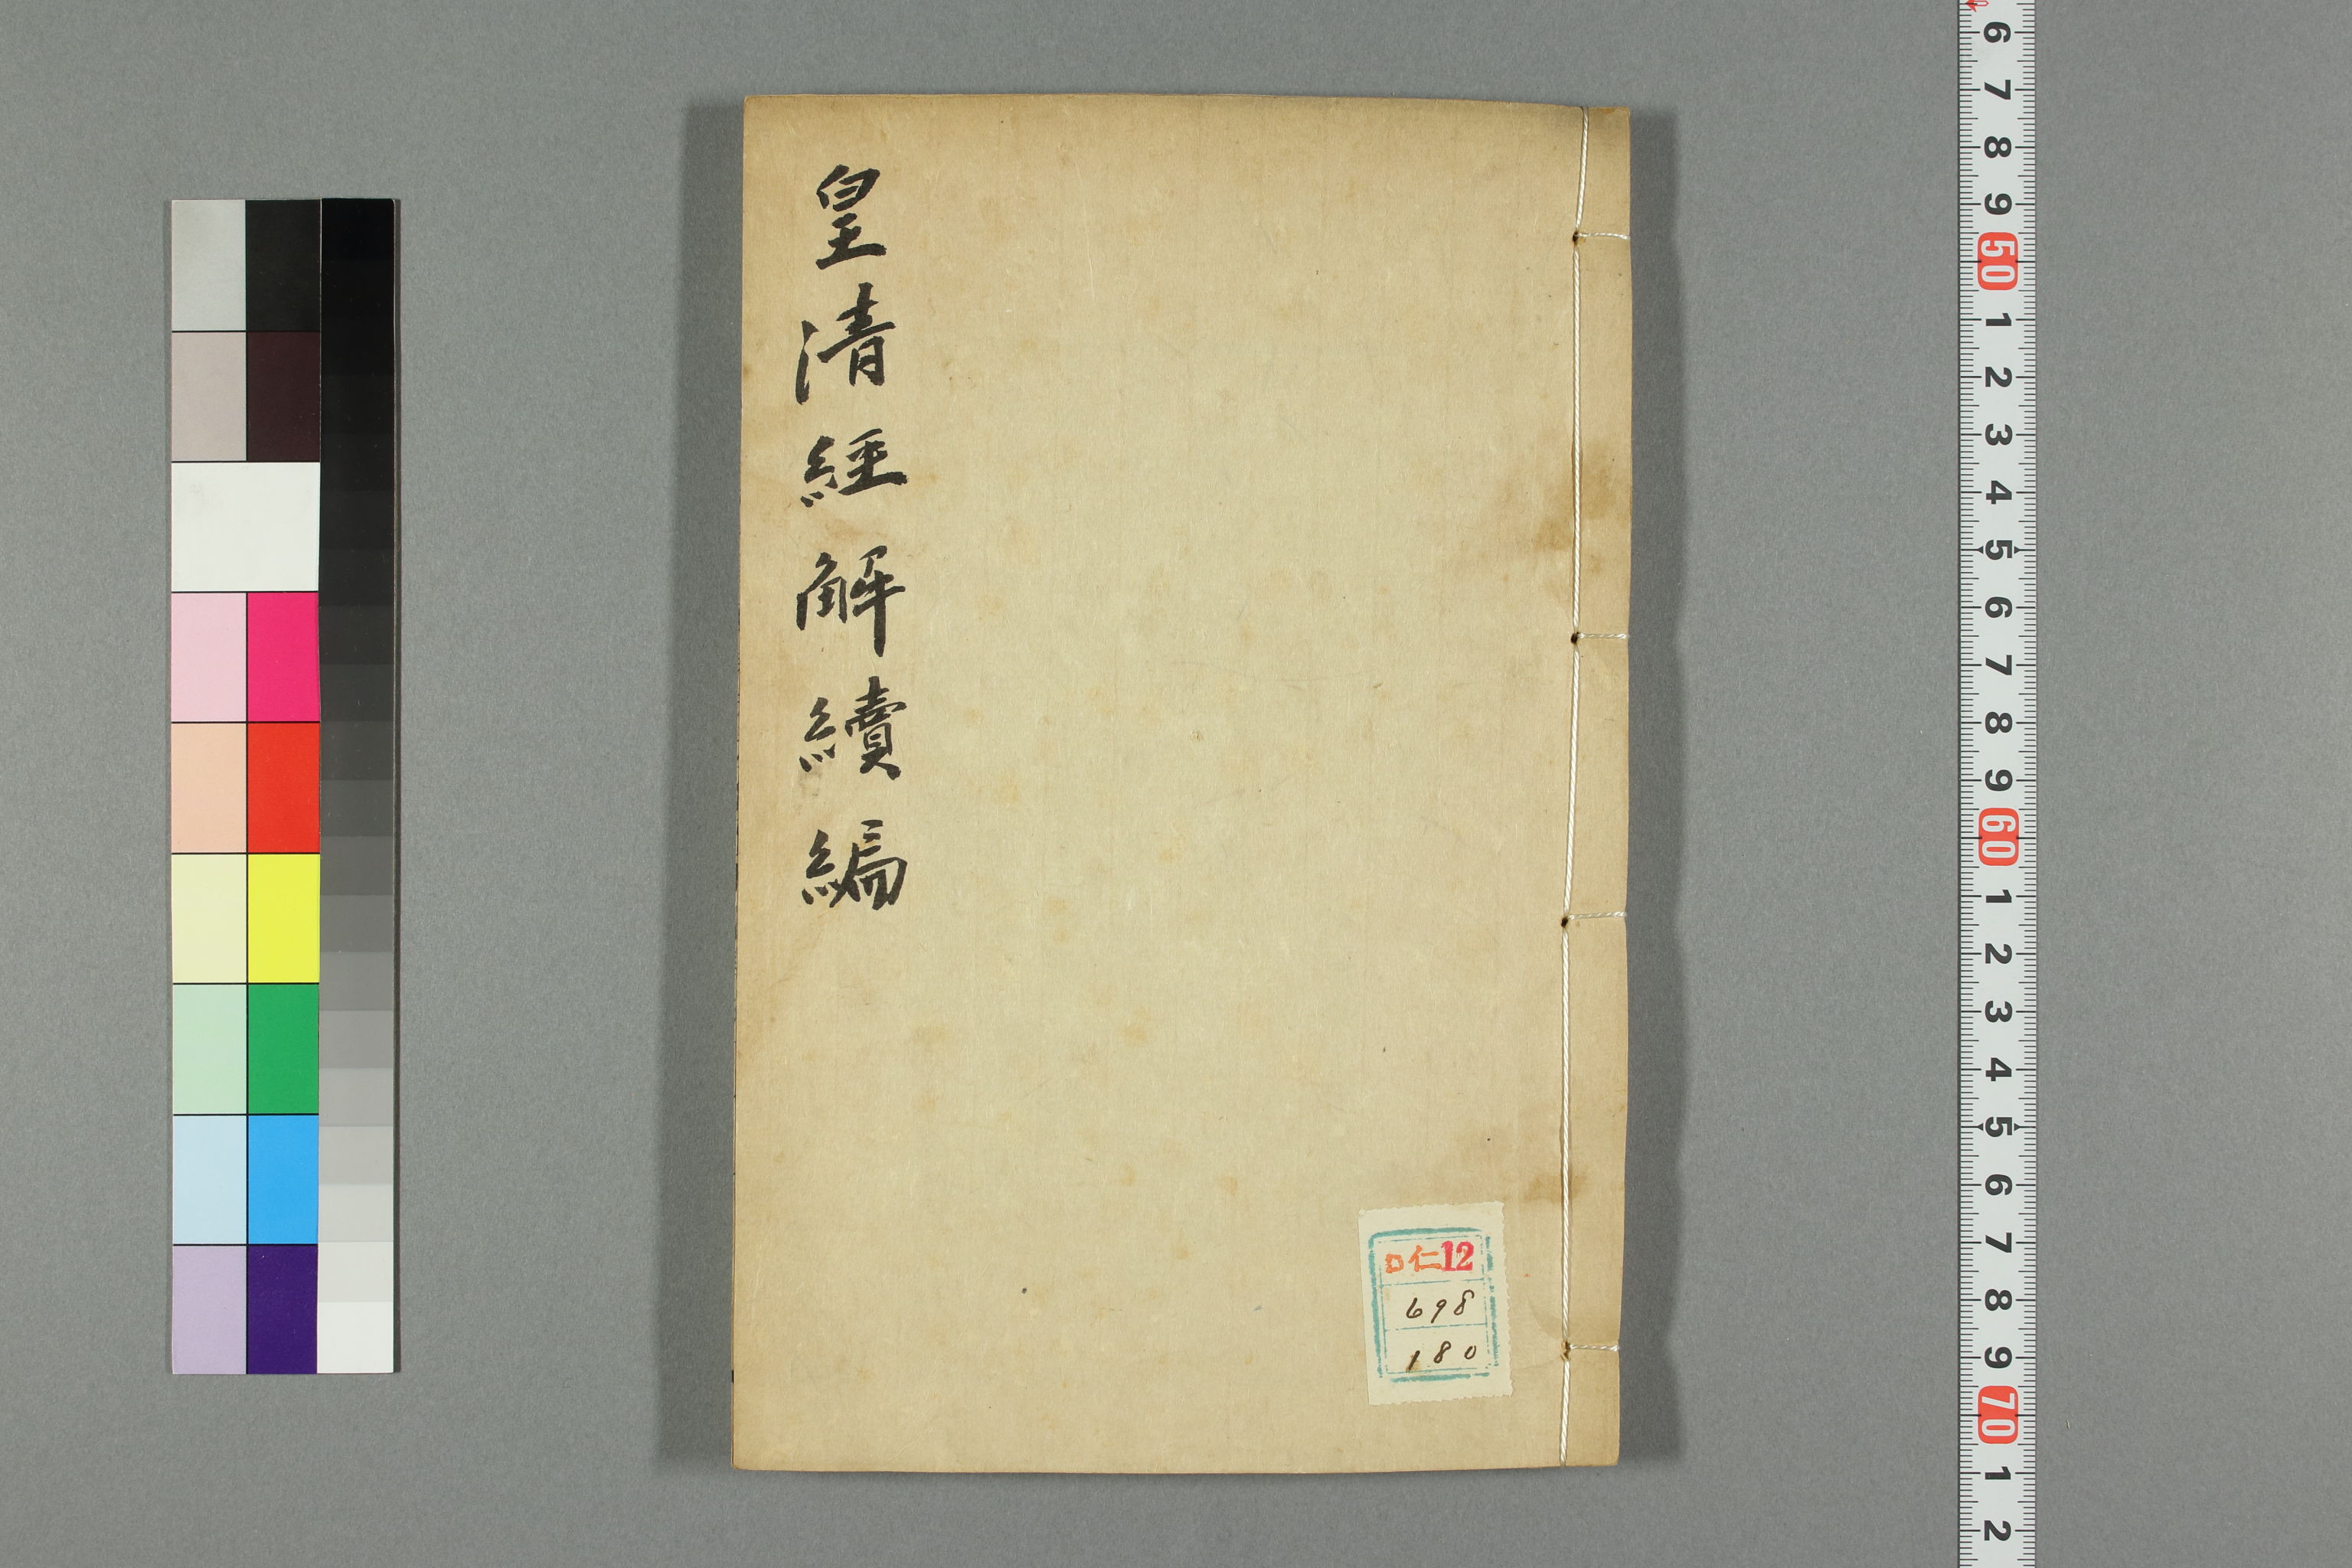 皇清經解續編
ロ仁12
698
180
6
7
8
9
50
1
2
3
4
5
6
7
8
9
60
1
2
3
4
5
6
7
8
9
70
1
2